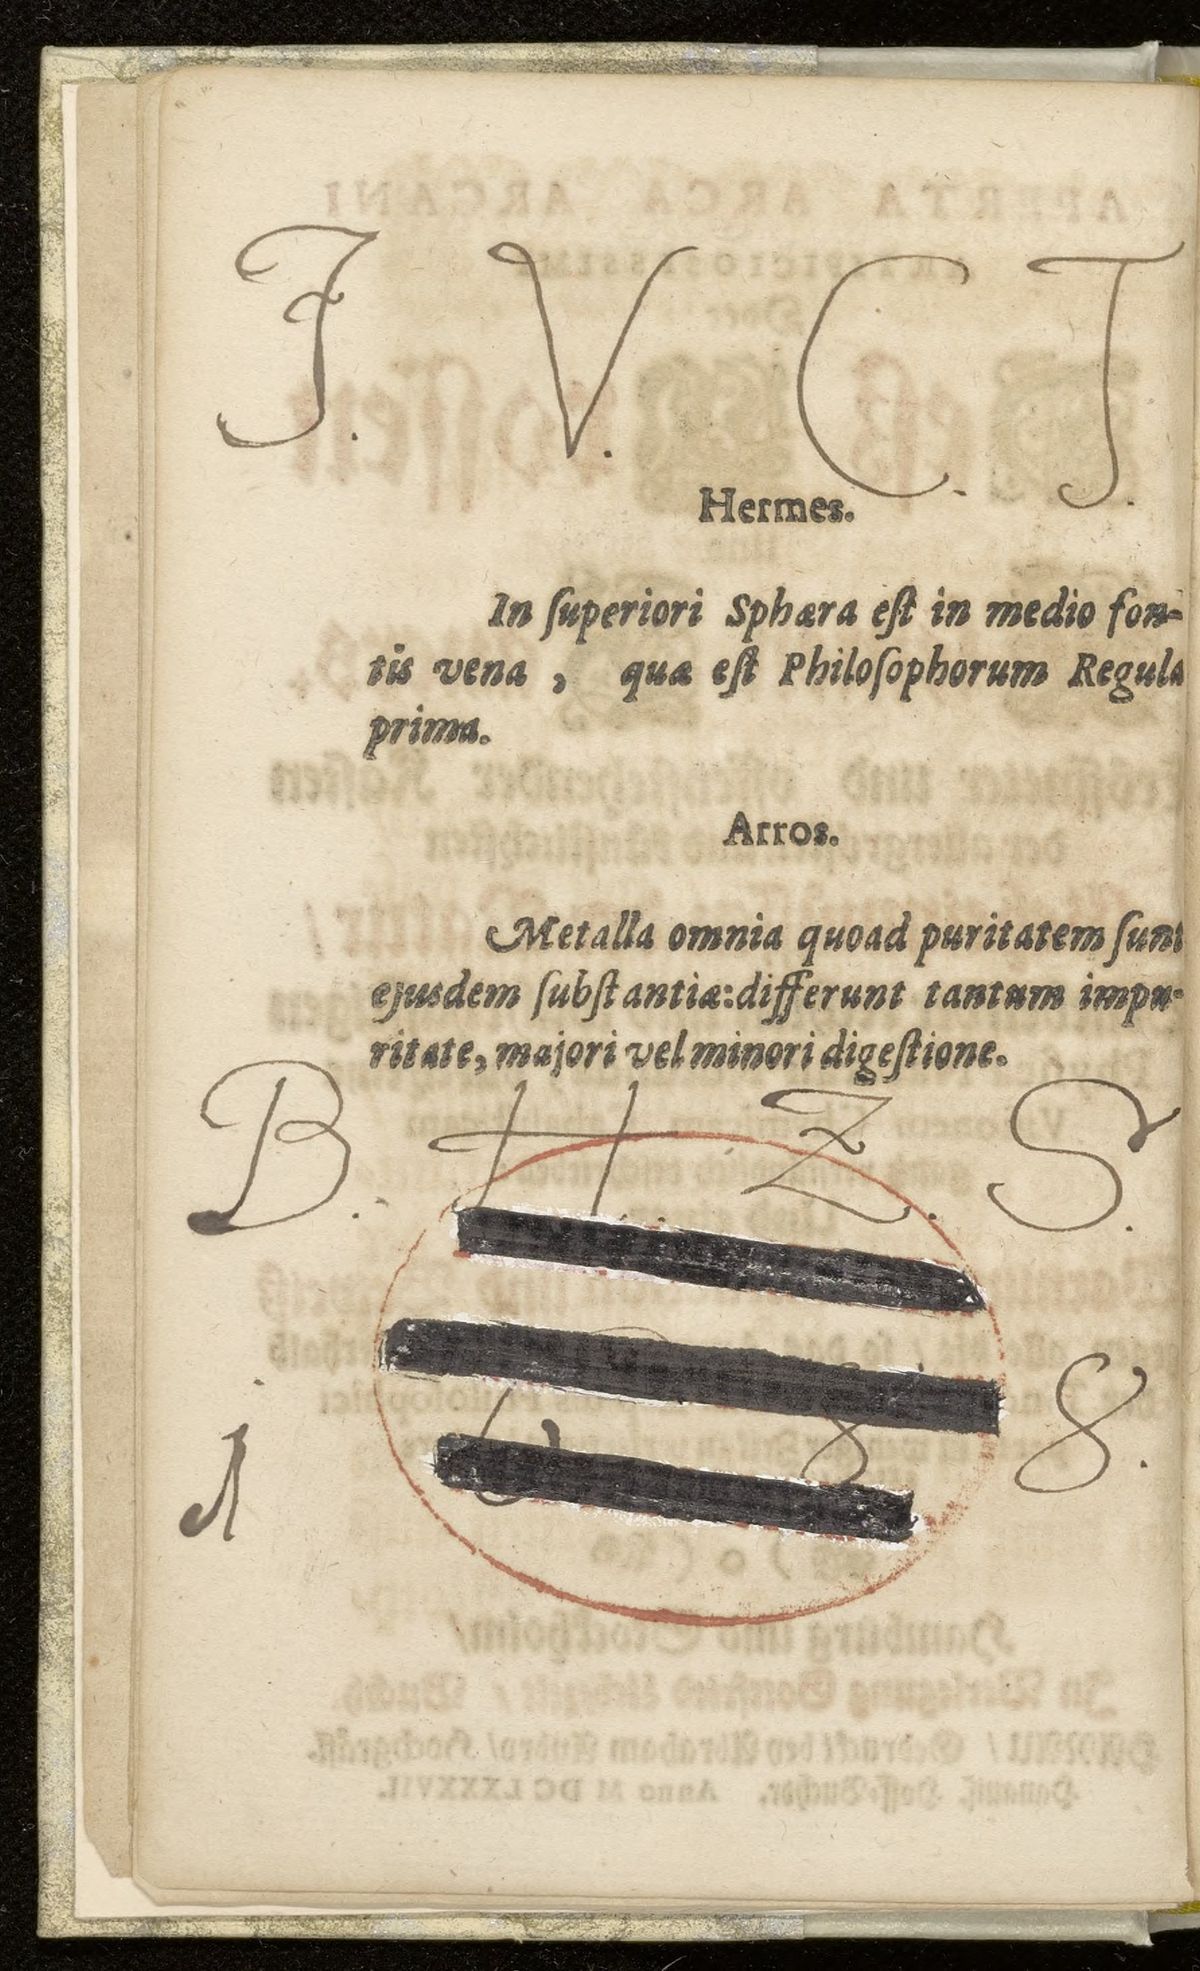 J. V. C. T.
Hermes.
In ſuperiori Sphæra eſt in medio fon-
tis vena, quæ eſt Philoſophorum Regula
prima.
Arros.
Metalla omnia quoad puritatem ſunt
ejusdem ſubſtantiæ: differunt tantum impu-
ritate, majori vel minori digeſtione.
B. H. Z. S.
1 6 8 8.